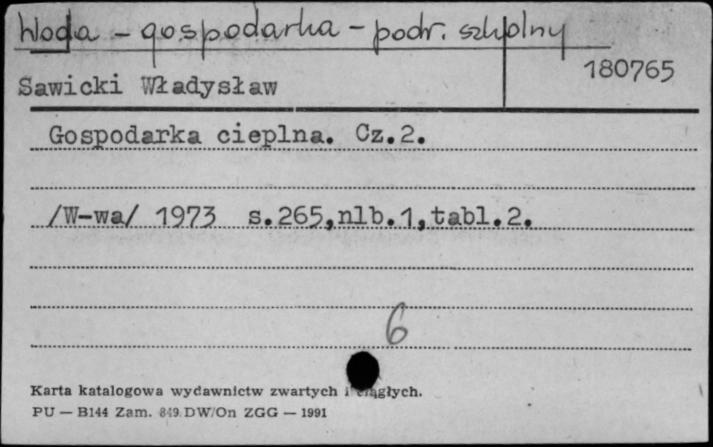 Woda - gospodarka - podr. szkolny
180765
Sawicki Władysław
Gospodarka cieplna. Cz.2.
/W-wa/ 1973 s.265,nlb.1,tabl.2.
6
Karta katalogowa wydawnictw zwartych i ciągłych.
PU — B144 Zam. 849 DW/On ZGG — 1991